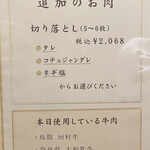 追加のお肉
切り落とし(5～6枚)
税込¥2,068
◎タレ
◎コチュジャンダレ
◎ネギ塩
からお選びください
本日使用している牛肉
・鳥取 田村牛